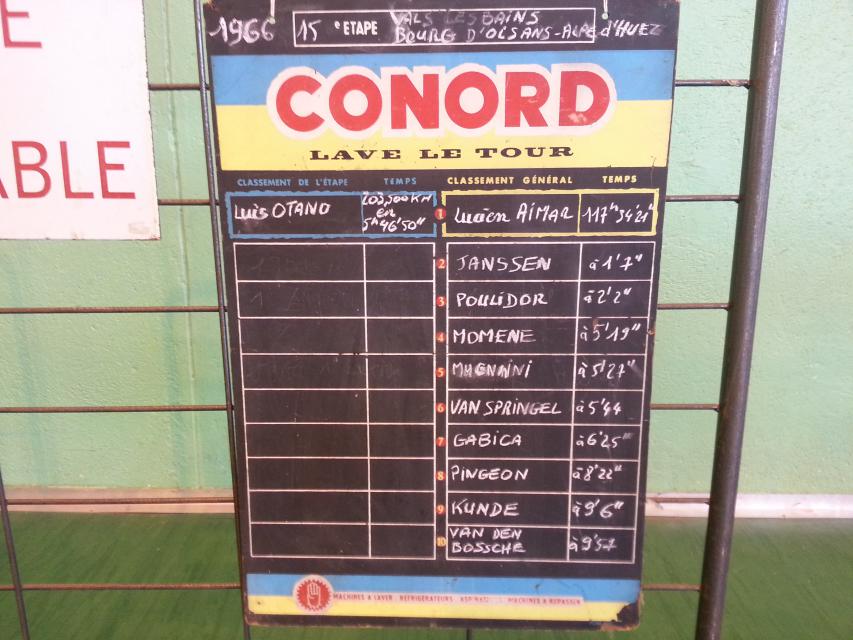 E
ABLE
1966
15 e ETAPE
VALS LES BAINS
BOURG D'OISANS-ALPE d'HUEZ
CONORD
LAVE LE TOUR
CLASSEMENT DE L'ÉTAPE TEMPS CLASSEMENT GÉNÉRAL TEMPS
Luis OTANO 203,500KM en 5h46'50" 1 Lucien AIMAR 117h34'21"
2 JANSSEN à 1'7"
3 POULIDOR à 2'2"
4 MOMENE à 5'19"
5 MUGNAINI à 5'27"
6 VAN SPRINGEL à 5'44
7 GABICA à 6'25"
8 PINGEON à 8'22"
9 KUNDE à 9'6"
10 VAN DEN BOSSCHE à 9'57
MACHINES A LAVER - REFRIGERATEURS - MACHINES A REPASSER